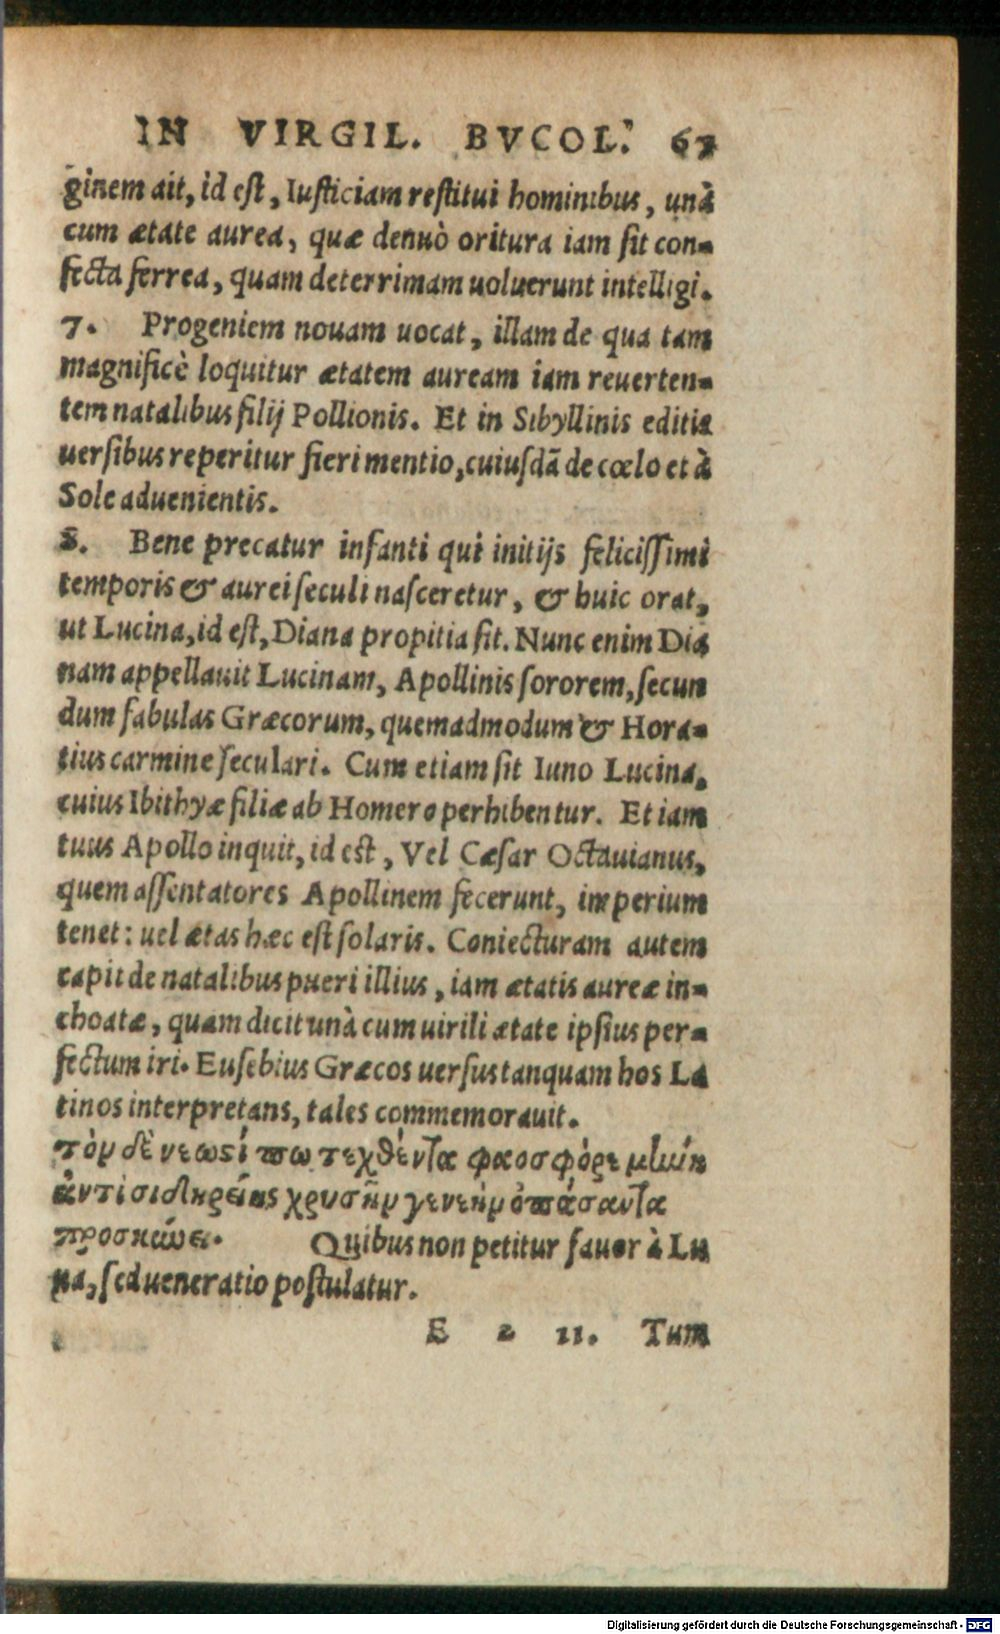 IN VIRGIL. BVCOL. 67
ginem ait, id est, Iusticiam restitui hominibus, unà
cum ætate aurea, quæ denuò oritura iam sit con-
fecta ferrea, quam deterrimam uoluerunt intelligi.
7. Progeniem nouam uocat, illam de qua tam
magnificè loquitur ætatem auream iam reuerten-
tem natalibus filij Pollionis. Et in Sibyllinis editis
uersibus reperitur fieri mentio, cuiusdã de cœlo et à
Sole aduenientis.
8. Bene precatur infanti qui initijs felicissimi
temporis & aurei seculi nasceretur, & huic orat,
ut Lucina, id est, Diana propitia sit. Nunc enim Dia
nam appellauit Lucinam, Apollinis sororem, secun
dum fabulas Græcorum, quemadmodum & Hora-
tius carmine seculari. Cum etiam sit Iuno Lucina,
cuius Ibithyæ filiæ ab Homero perhibentur. Et iam
tuus Apollo inquit, id est, Vel Cæsar Octauianus,
quem assentatores Apollinem fecerunt, imperium
tenet: uel ætas hæc est solaris. Coniecturam autem
capit de natalibus pueri illius, iam ætatis aureæ in-
choatæ, quam dicit unà cum uirili ætate ipsius per-
fectum iri. Eusebius Græcos uersus tanquam hos La
tinos interpretans, tales commemorauit.
τὸν δὲ νεωστί πω τεχθέντα φαοσφόρε μήνη
ἀντὶ σιδηρείης χρυσῆν γενεὴν ὀπάσαντα
προσκύνει. Quibus non petitur fauor à Lu
na, sed ueneratio postulatur.
E 2 11. Tum
Digitalisierung gefördert durch die Deutsche Forschungsgemeinschaft - DFG